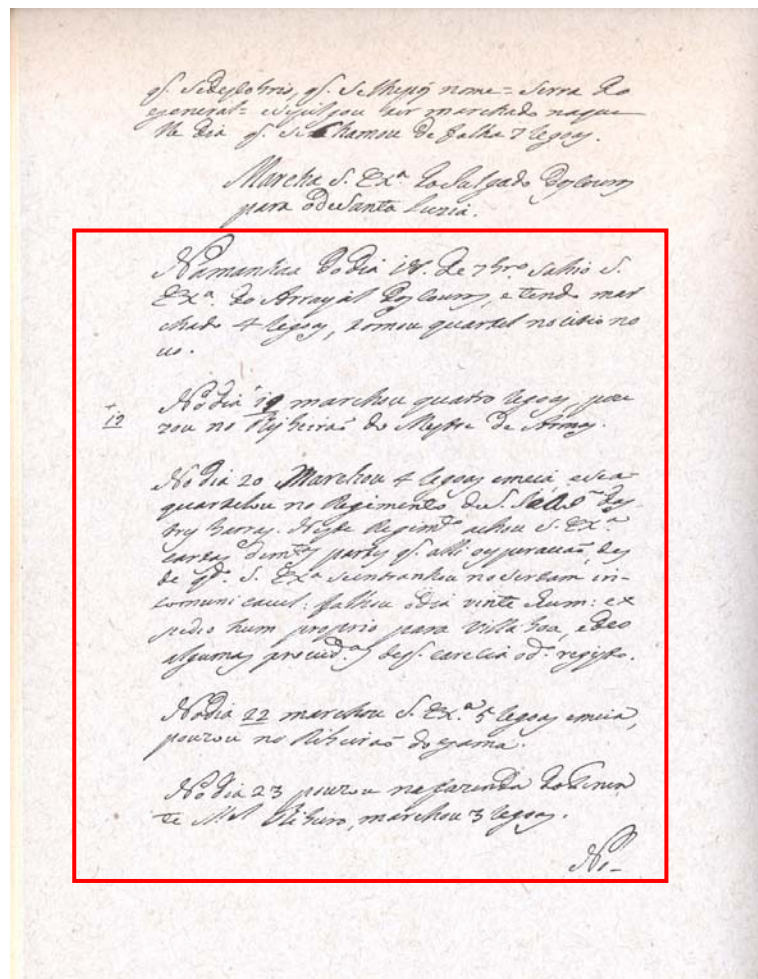 q̃. sedescobrio, q̃. se lhe pos nome = Serra do
general = e se julgou ter marchado naque
lle dia q̃. se chamou de falha 7 legoas.
Marcha S. Exª. do Salgado dos Couros
para o de Santa Luzia.
Na manhaã do dia 18. de 7bro sahio S.
Exª. do Arrayal dos Couros, e tendo mar
chado 4 legoas, tomou quartel no citio no
vo.
No dia 19 marchou quatro legoas, pou
19
zou no Ribeiraõ do Mestre de Armas.
No dia 20 Marchou 4 legoas e meia e se a
quartelou no Regimento de S. das
tres barras. Neste Regimto. achou S. Exª.
cartas de mtas. partes q̃. alli o esperavaõ, des
de qdo. S. Exª. se entranhou no Sertam in-
comunicavel: falhou o dia vinte e hum: ex
pedio hum proprio para Villa boa, e deo
algumas provid.as de q̃. carecia o d.o registo.
No dia 22 marchou S. Exª. 5 legoas e meia,
pouzou no Ribeiraõ da gama.
No dia 23 pouzou na fazenda do Tenen
te M.el Ribeiro, marchou 3 legoas.
No-